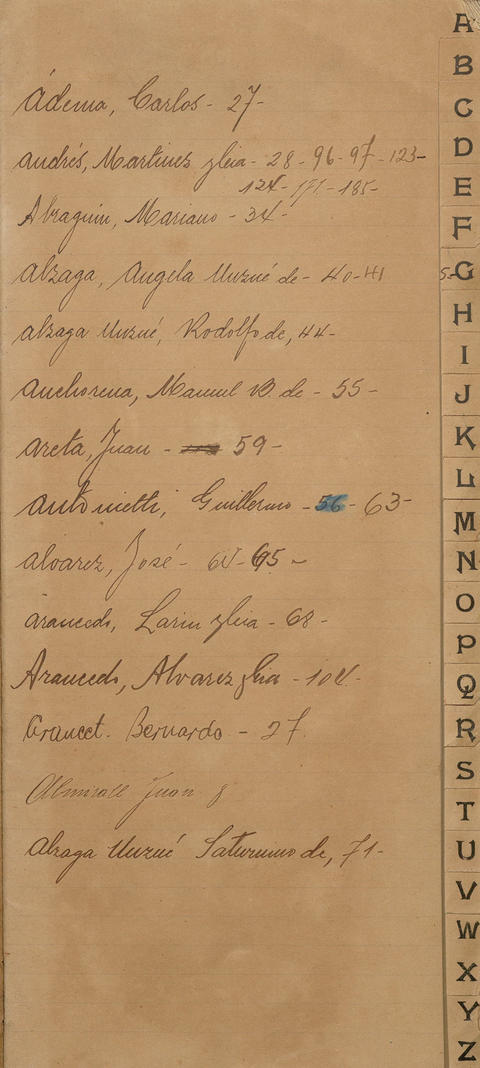 Ádema, Carlos - 27-
Andrés, Martinez y Cia - 28 - 96 - 97 - 123-
124 - 171 - 185-
Abraguin, Mariano - 34-
Alzaga, Angela Unzué de - 40-41
Alzaga Unzué, Rodolfo de, 44-
Anchorena, Manuel B. de - 55 -
Areta, Juan - 59 -
Antonietti, Guillermo - 56 - 63-
Alvarez, José - 65 -
Aranceds, Larin y Cia - 68 -
Aranceds, Alvarez y Cia - 104-
Bernardo - 27
Almirall Juan 8
Alzaga Unzué Saturnino de, 71-
A
B
C
D
E
F
G
H
I
J
K
L
M
N
O
P
Q
R
S
T
U
V
W
X
Y
Z